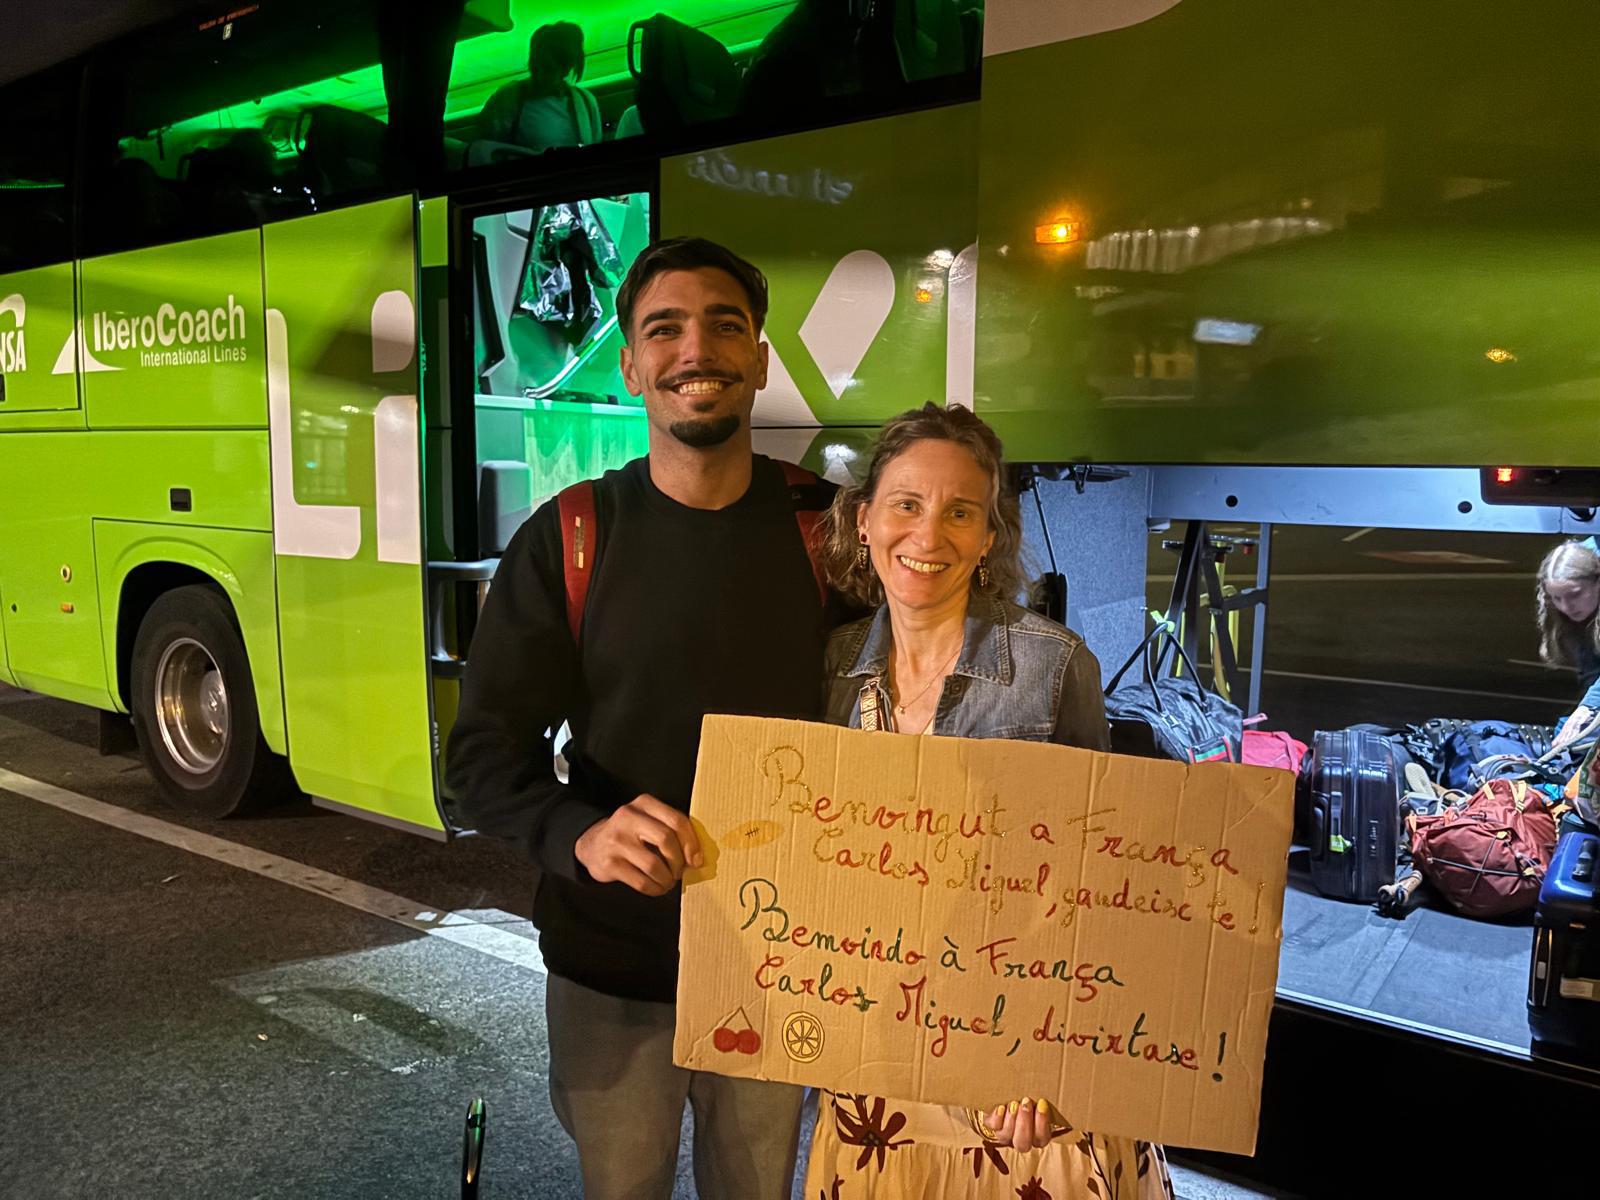 IberoCoach
International Lines
Benvingut a França
Carlos Miguel, gaudeisc te!
Bemvindo à França
Carlos Miguel, divixtase!